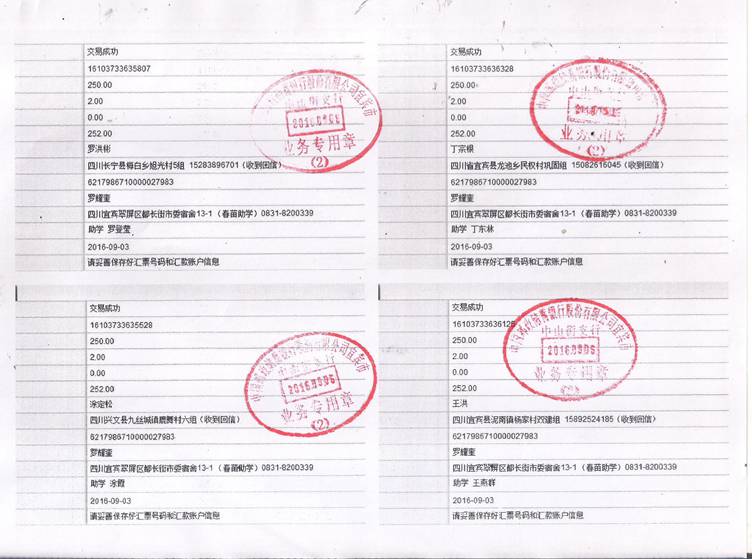 交易成功
16103733635807
250.00
2.00
0.00
252.00
罗洪彬
四川长宁县梅白乡旭光村5组 15283896701 (收到回信)
6217986710000027983
罗耀奎
四川宜宾翠屏区都长街市委宿舍13-1 (春苗助学) 0831-8200339
助学 罗登莹
2016-09-03
请妥善保存好汇票号码和汇款账户信息
业务专用章
(2)
交易成功
16103733636328
250.00
2.00
0.00
252.00
丁宗银
四川省宜宾县龙池乡民权村巩固组 15082616045 (收到回信)
6217986710000027983
罗耀奎
四川宜宾翠屏区都长街市委宿舍13-1 (春苗助学) 0831-8200339
助学 丁东林
2016-09-03
请妥善保存好汇票号码和汇款账户信息
业务专用章
(2)
交易成功
16103733635528
250.00
2.00
0.00
252.00
涂定松
四川兴文县九丝城镇鹿舞村六组 (收到回信)
6217986710000027983
罗耀奎
四川宜宾翠屏区都长街市委宿舍13-1 (春苗助学) 0831-8200339
助学 涂霞
2016-09-03
请妥善保存好汇票号码和汇款账户信息
2016.09.06
业务专用章
(2)
交易成功
16103733636128
250.00
2.00
0.00
252.00
王洪
四川宜宾县泥南镇杨家村双建组 15892524185 (收到回信)
6217986710000027983
罗耀奎
四川宜宾翠屏区都长街市委宿舍13-1 (春苗助学) 0831-8200339
助学 王燕群
2016-09-03
请妥善保存好汇票号码和汇款账户信息
中山街支行
2016.09.06
业务专用章
(2)